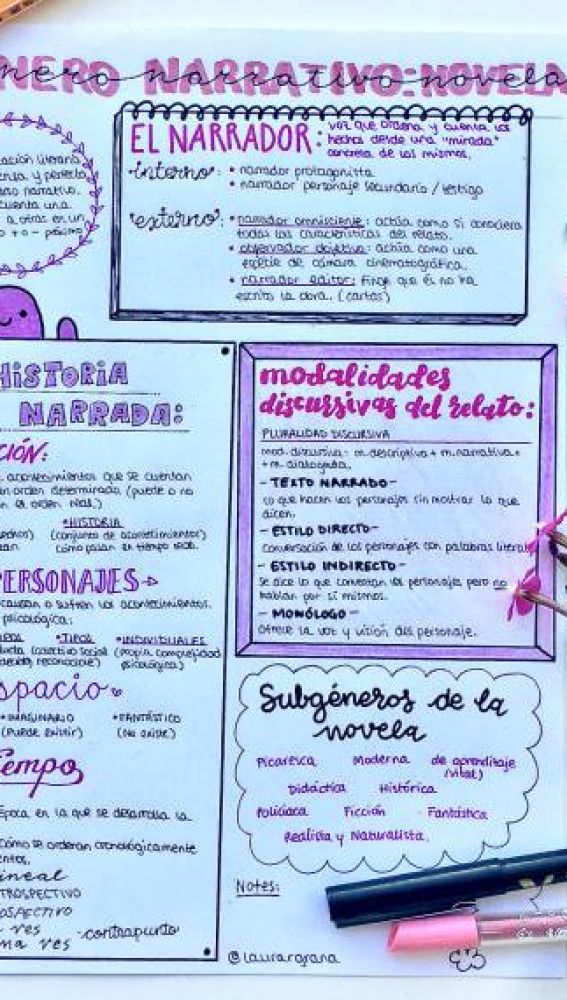 NERO NARRATIVO: NOVELA
EL NARRADOR: voz que ordena y cuenta los
hechos desde una "mirada"
concreta de los mismos.
·interno: • narrador protagonista
• narrador personaje secundario / testigo
·externo: • narrador omnisciente: actúa como si conociera
todas las características del relato.
• observador objetivo: actúa como una
especie de cámara cinematográfica.
• narrador editor: finge que él no ha
escrito la obra. (cartas)
literaria
y perfecta
narrativo.
cuenta una
a otras en un
+ o -
HISTORIA
NARRADA:
CIÓN:
acontecimientos que se cuentan
un orden determinado (puede o no
el orden real.)
•HISTORIA
(conjunto de acontecimientos)
cómo pasan en tiempo real.
PERSONAJES
causan o sufren los acontecimientos.
psicológica:
•TIPOS •INDIVIDUALES
(colectivo social (propia complejidad
reconocible) psicológica)
spacio
•IMAGINARIO •FANTÁSTICO
(Puede existir) (No existe)
Tempo
Época en la que se desarrolla la
Cómo se ordenan cronológicamente
lineal
TROSPECTIVO
OSPECTIVO
res ·contrapunto
na res
modalidades
discursivas del relato:
PLURALIDAD DISCURSIVA
mod. discursiva = m. descriptiva + m. narrativa +
+ m. dialogada.
- TEXTO NARRADO -
lo que hacen los personajes sin mostrar lo que
dicen.
- ESTILO DIRECTO -
Conversación de los personajes con palabras literal
- ESTILO INDIRECTO -
Se dice lo que conversan los personajes pero no
hablan por sí mismos.
- MONÓLOGO -
Ofrece la voz y visión del personaje.
Subgéneros de la
novela
Picaresca Moderna de aprendizaje
(vital)
Didáctica Histórica
Policíaca Ficción Fantástica
Realista y Naturalista.
Notes:
@laurargrana